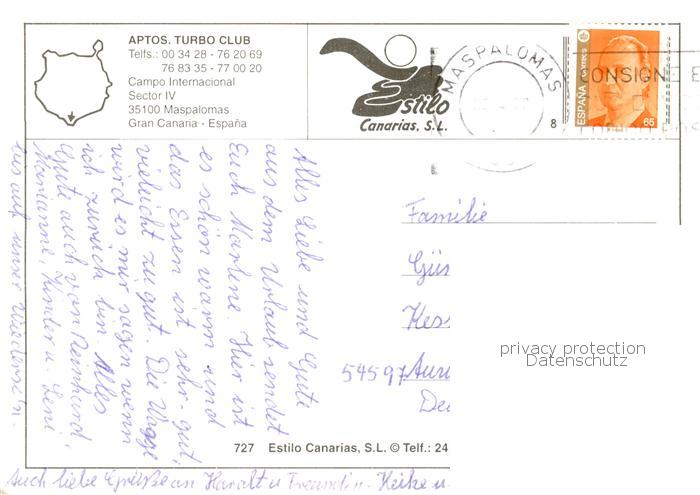 APTOS. TURBO CLUB
Telfs.: 00 34 28 - 76 20 69
76 83 35 - 77 00 20
Campo Internacional
Sector IV
35100 Maspalomas
Gran Canaria - España
Estilo
Canarias, S.L.
MASPALOMAS
8
CONSIGNE E
ESPAÑA
correos
65
Alles Liebe und Gute
aus dem Urlaub sendet
Euch Marlene. Hier ist
es schön warm und
das Essen ist sehr gut,
vielleicht zu gut. Die Waage
wird es mir sagen wenn
ich zurück bin. Alles
Gute auch von Reinhard,
Marianne, Kinder u. Leni
bis auf unser Wiedersehn.
Auch liebe Grüße an Harald u Freundin. Heike u
Familie
Gün
Kes
54597 Auw
De
privacy protection
Datenschutz
727 Estilo Canarias, S.L. © Telf.: 24